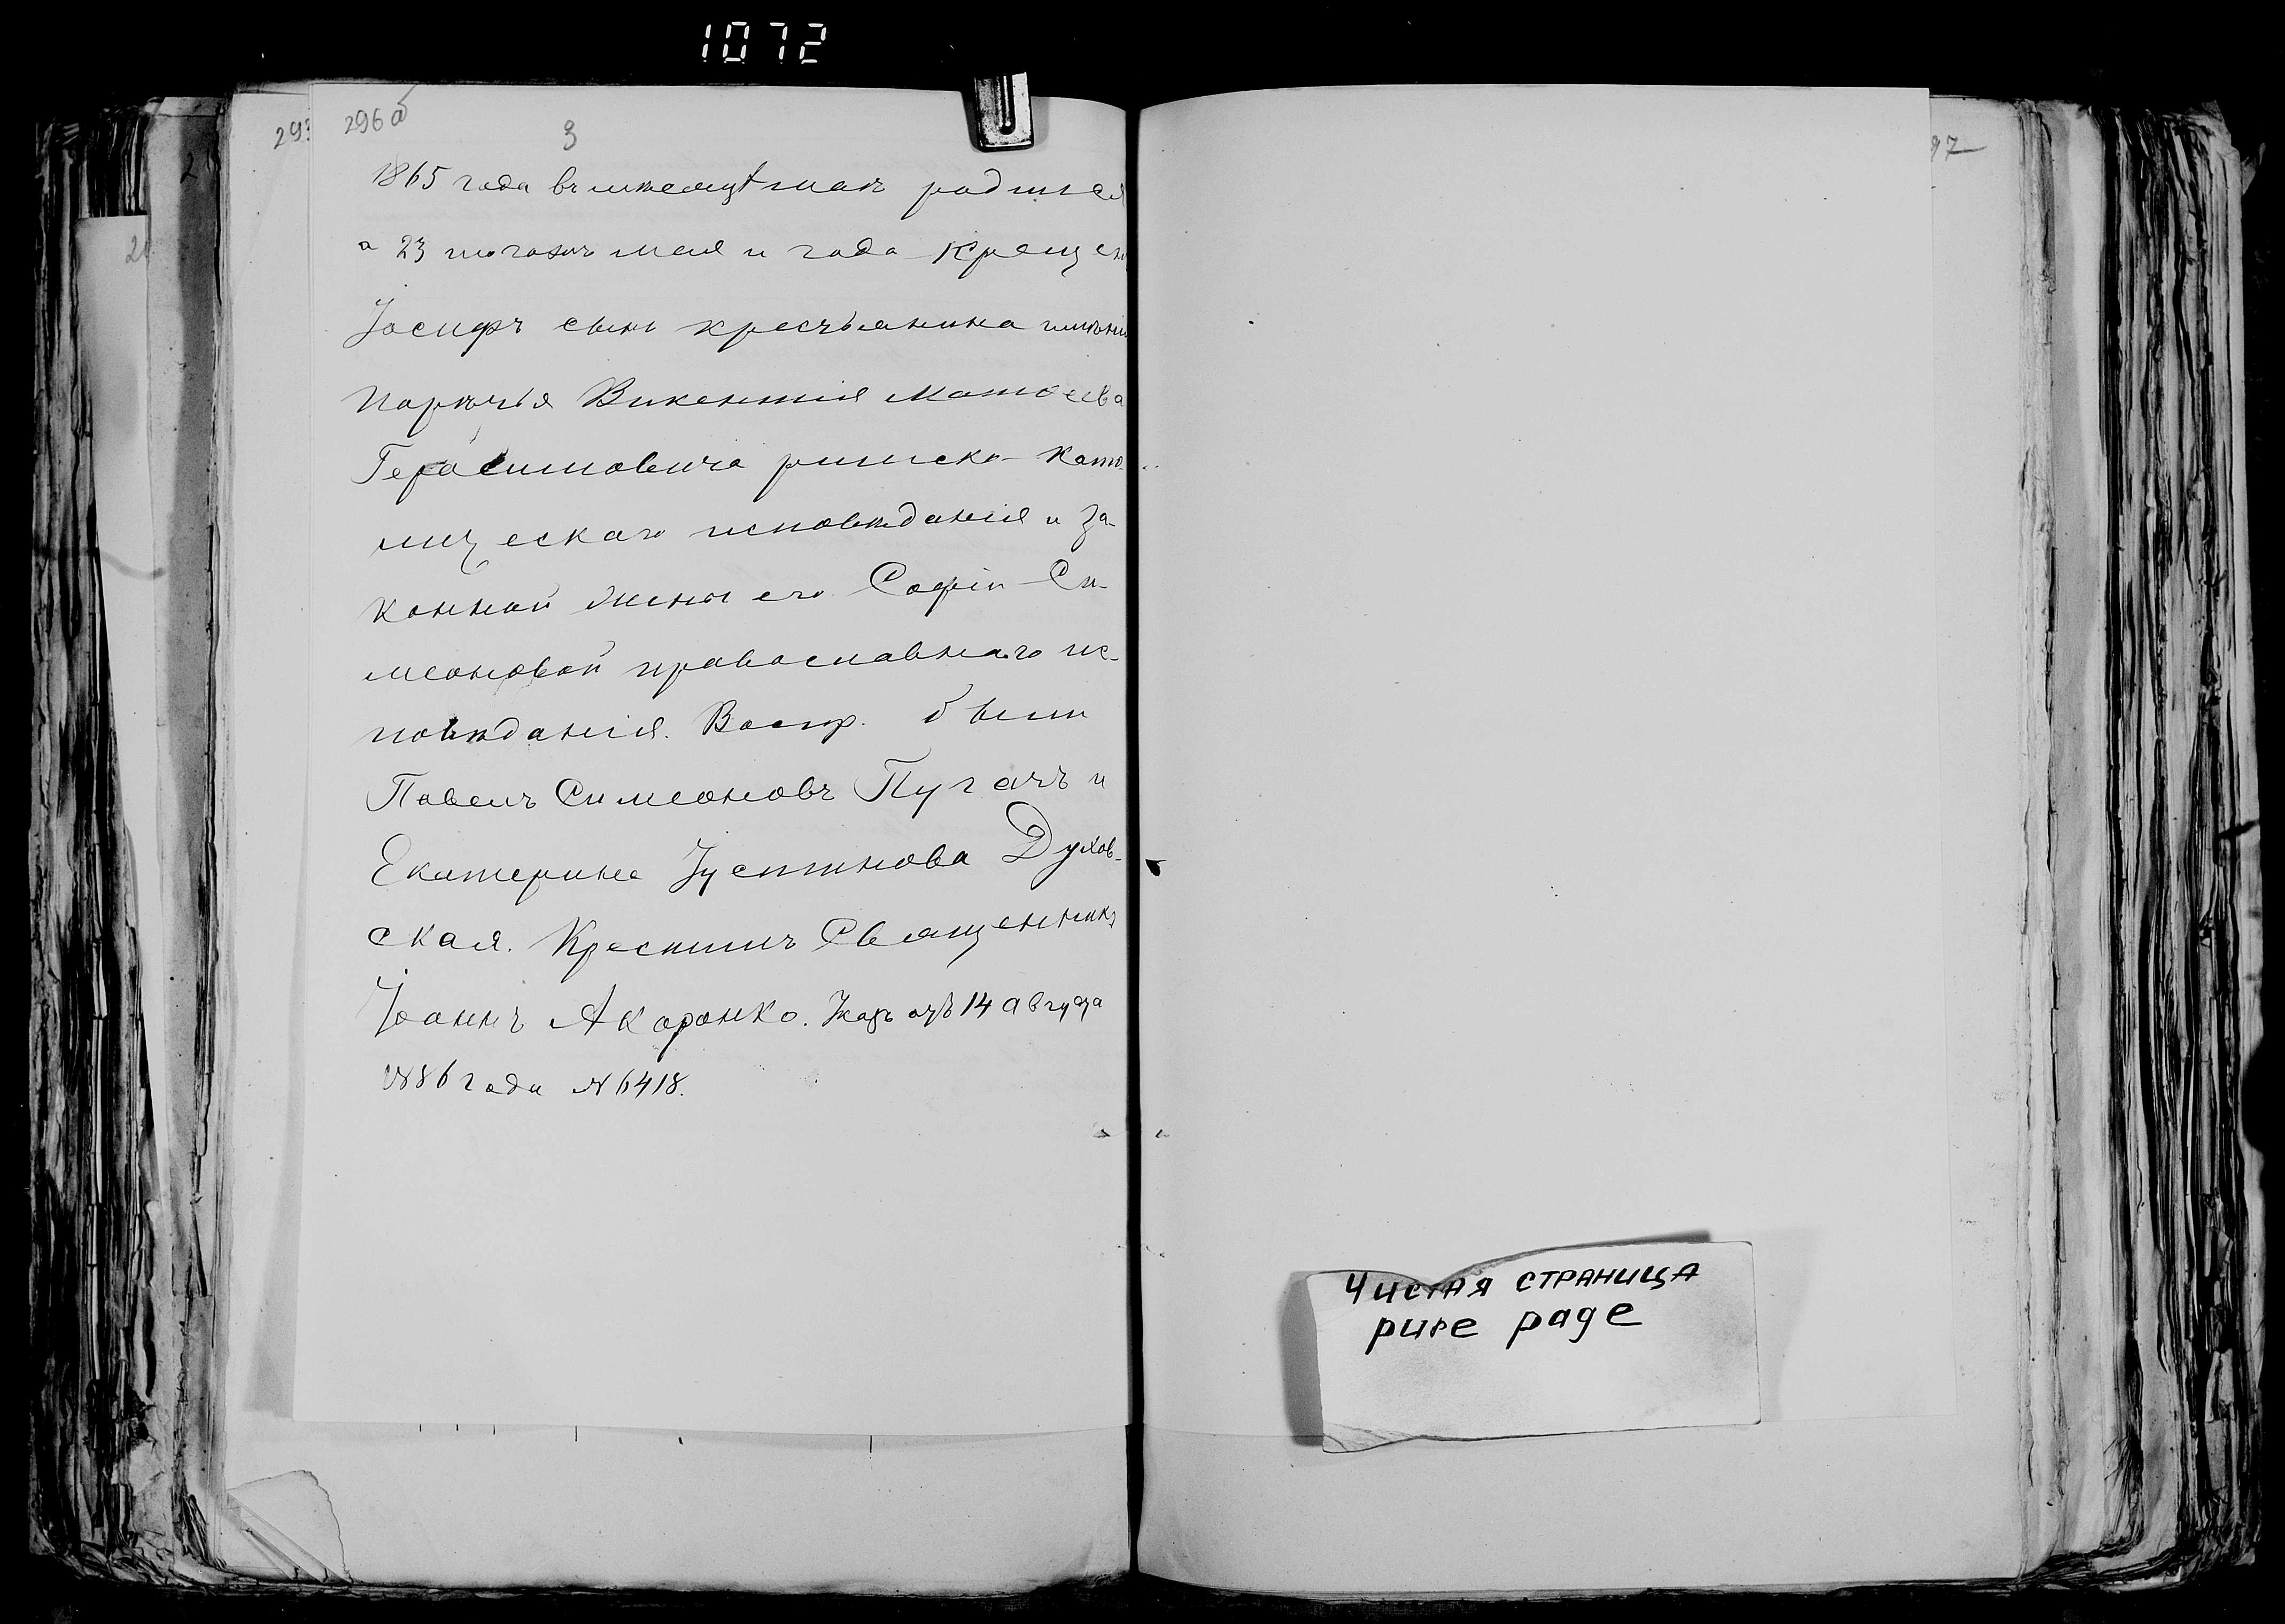 1072
293 296 аб
97
3
1865 года въ мѣсяцѣ маѣ родился
а 23 тогоже мая и года крещен
Іосифъ сынъ крестьянина имѣнія
Порѣчья Викентія Матѳеева
Герасимовича римско-като-
лическаго исповѣданія и за-
конной жены его Софіи Си-
меоновой православнаго ис-
повѣданія. Воспр. были
Павелъ Симеоновъ Пугачъ и
Екатерина Іустинова Духов-
ская. Крестилъ Священникъ
Іоаннъ Акоронко. Указъ отъ 14 августа
1886 года № 6418.
Чистая страница
pure page